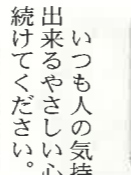 いつも人の気持
出来るやさしい心
続けてください。